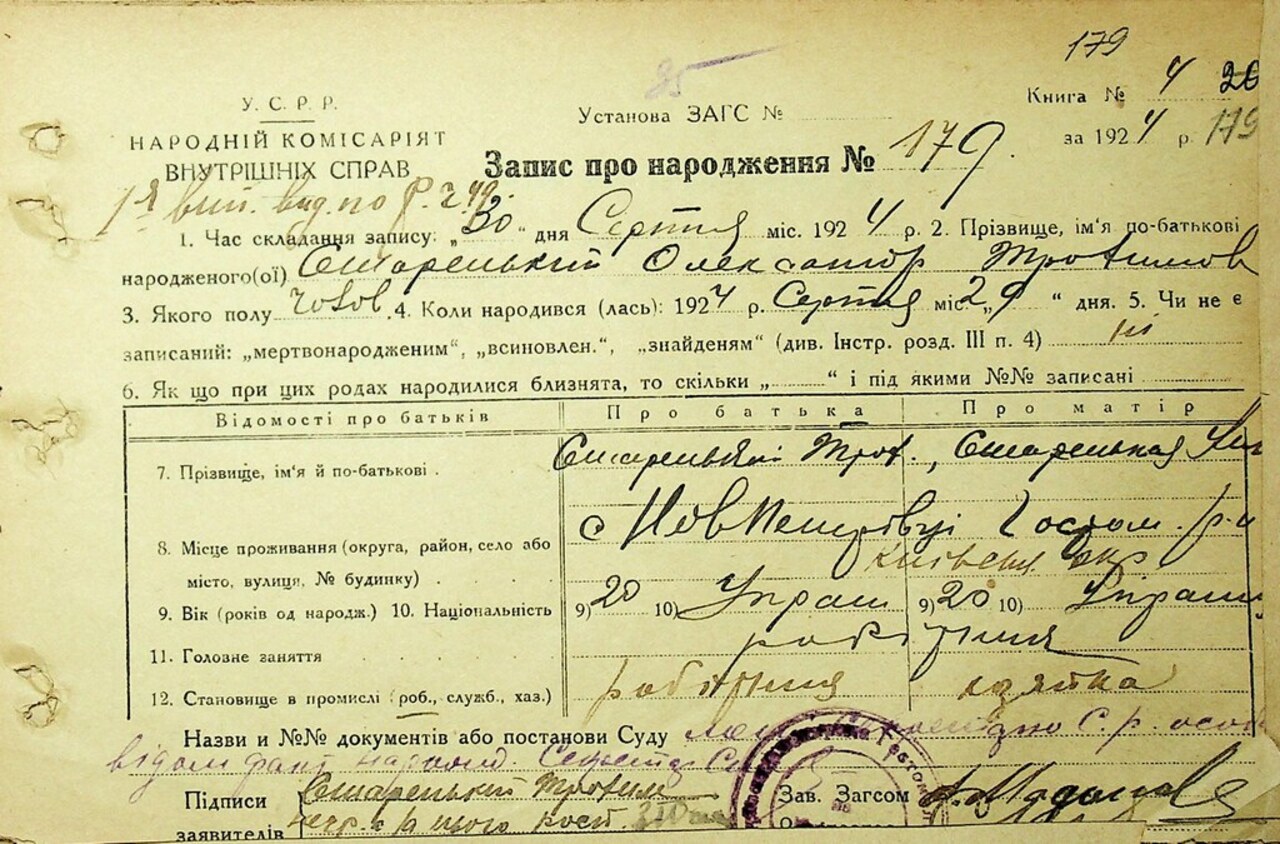 179
У. С. Р. Р.
НАРОДНІЙ КОМІСАРІЯТ
ВНУТРІШНІХ СПРАВ
95
Установа ЗАГС №
Книга № 4 26
за 1924 р. 179
Запис про народження № 179.
1. Час складання запису: „30“ дня Серпня міс. 1924 р. 2. Прізвище, ім'я по-батькові
народженого(ої) Старенький Олександр Трохимов
3. Якого полу чолов. 4. Коли народився (лась): 1924 р. Серпня міс. „29“ дня. 5. Чи не є
записаний: „мертвонародженим“, „всиновлен.“, „знайденям“ (див. Інстр. розд. III п. 4) ні
6. Як що при цих родах народилися близнята, то скільки „ “ і під якими №№ записані
Відомості про батьків Про батька Про матір
7. Прізвище, ім'я й по-батькові . Старенький Трох., Старенькая
8. Місце проживання (округа, район, село або
місто, вулиця, № будинку) . с Нов Петрівці Гостом. р-н
Київська окр
9. Вік (років од народж.) 10. Національність 9) 20 10) Украін 9) 20 10) Украін
11. Головне заняття робітниця
12. Становище в промислі (роб., служб., хаз.) робітниця
Назви и №№ документів або постанови Суду С. р. особ
відом факт народж.
Підписи Старенький Трохим
заявителів Зав. Загсом